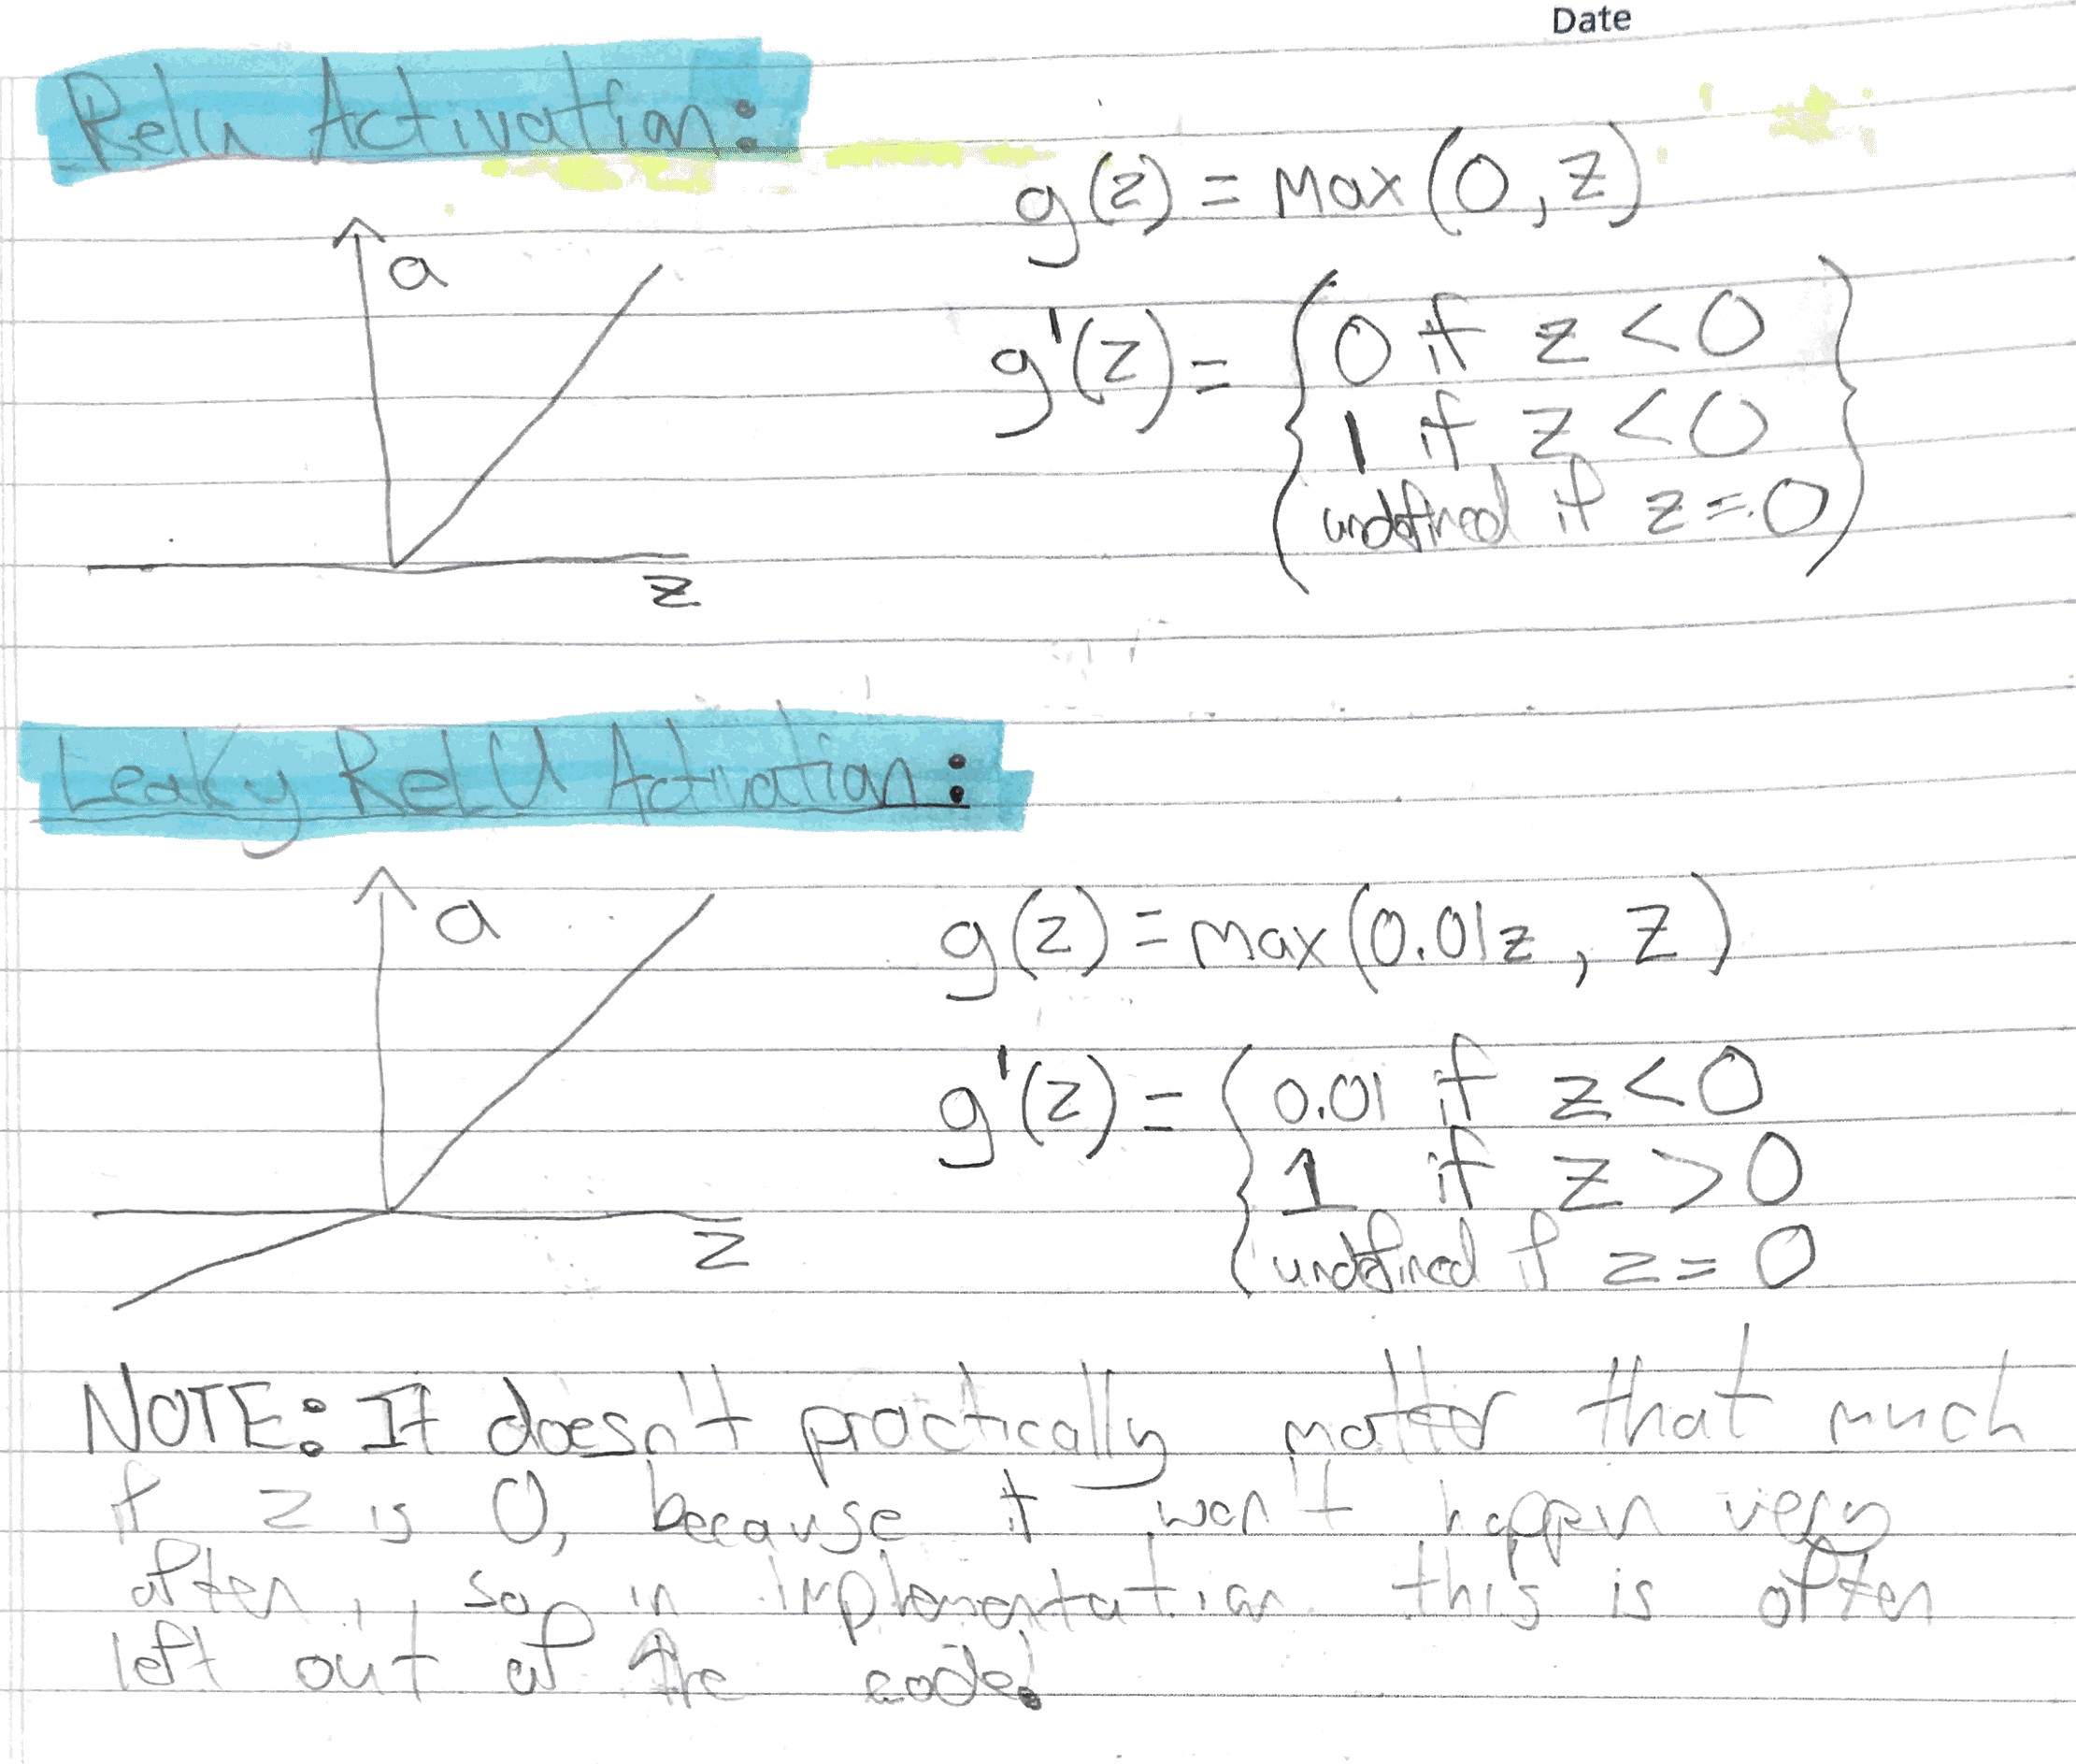 Date
Relu Activation:
a
g(z) = Max(0, z)
g'(z) = { 0 if z < 0
1 if z < 0
undefined if z = 0 }
z
Leaky ReLU Activation:
a
g(z) = max(0.01z, z)
g'(z) = { 0.01 if z < 0
1 if z > 0
undefined if z = 0
z
NOTE: It doesn't practically matter that much
if z is 0, because it won't happen very
often, so in implementation this is often
left out of the code.